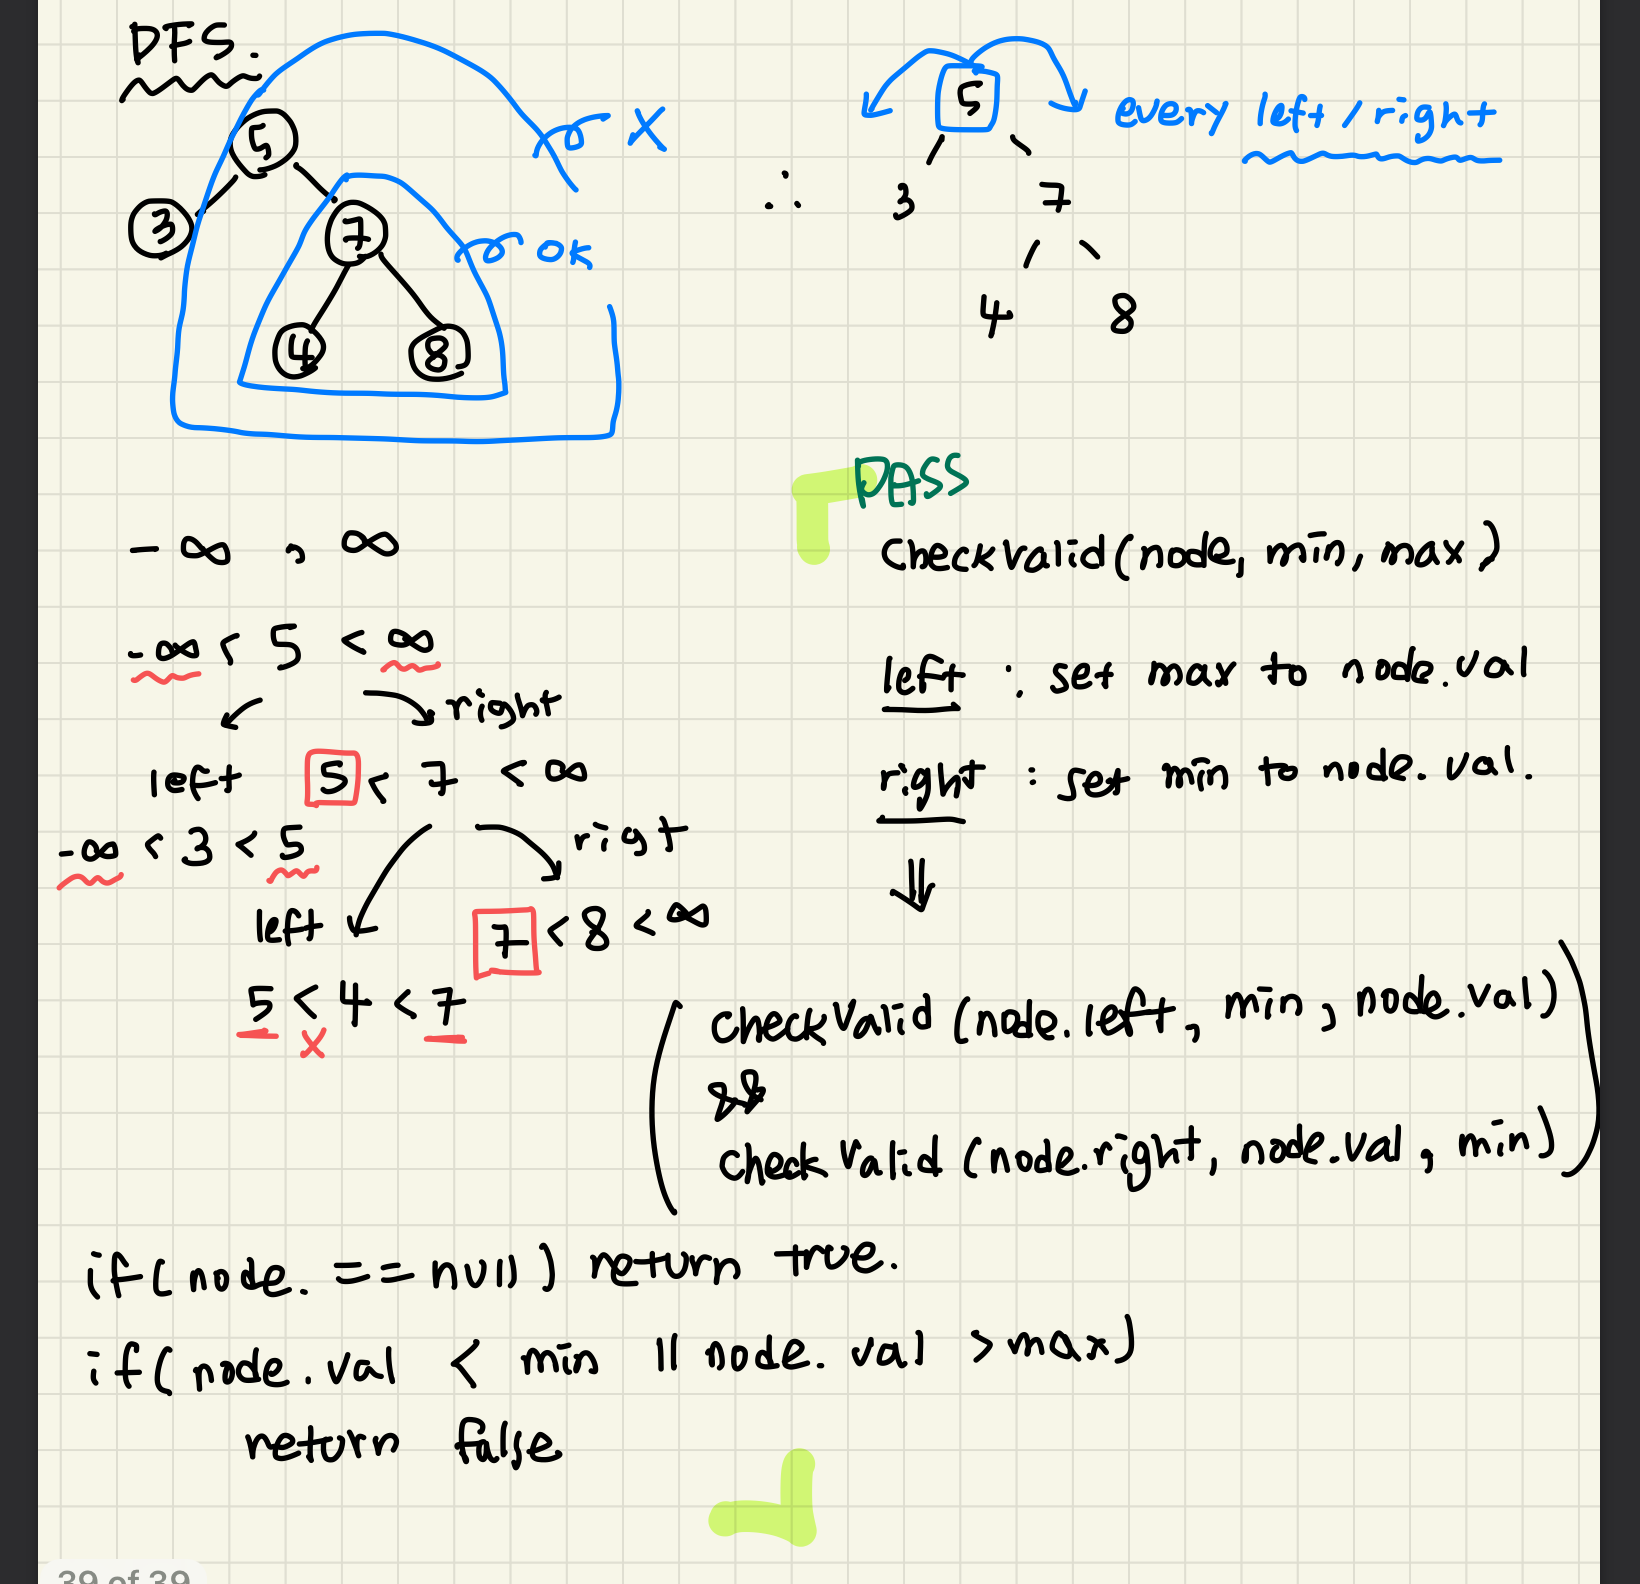 DFS.
5
3
7
4
8
X
ok
5
every left / right
∴
3
7
4
8
-∞ , ∞
-∞ < 5 < ∞
right
left
5 < 7 < ∞
-∞ < 3 < 5
right
left
7 < 8 < ∞
5 < 4 < 7
X
PASS
checkValid(node, min, max)
left : set max to node.val
right : set min to node.val.
⇓
(checkValid (node.left, min, node.val)
&&
checkValid (node.right, node.val, min))
if(node. == null) return true.
if(node.val < min || node.val > max)
return false
39 of 39